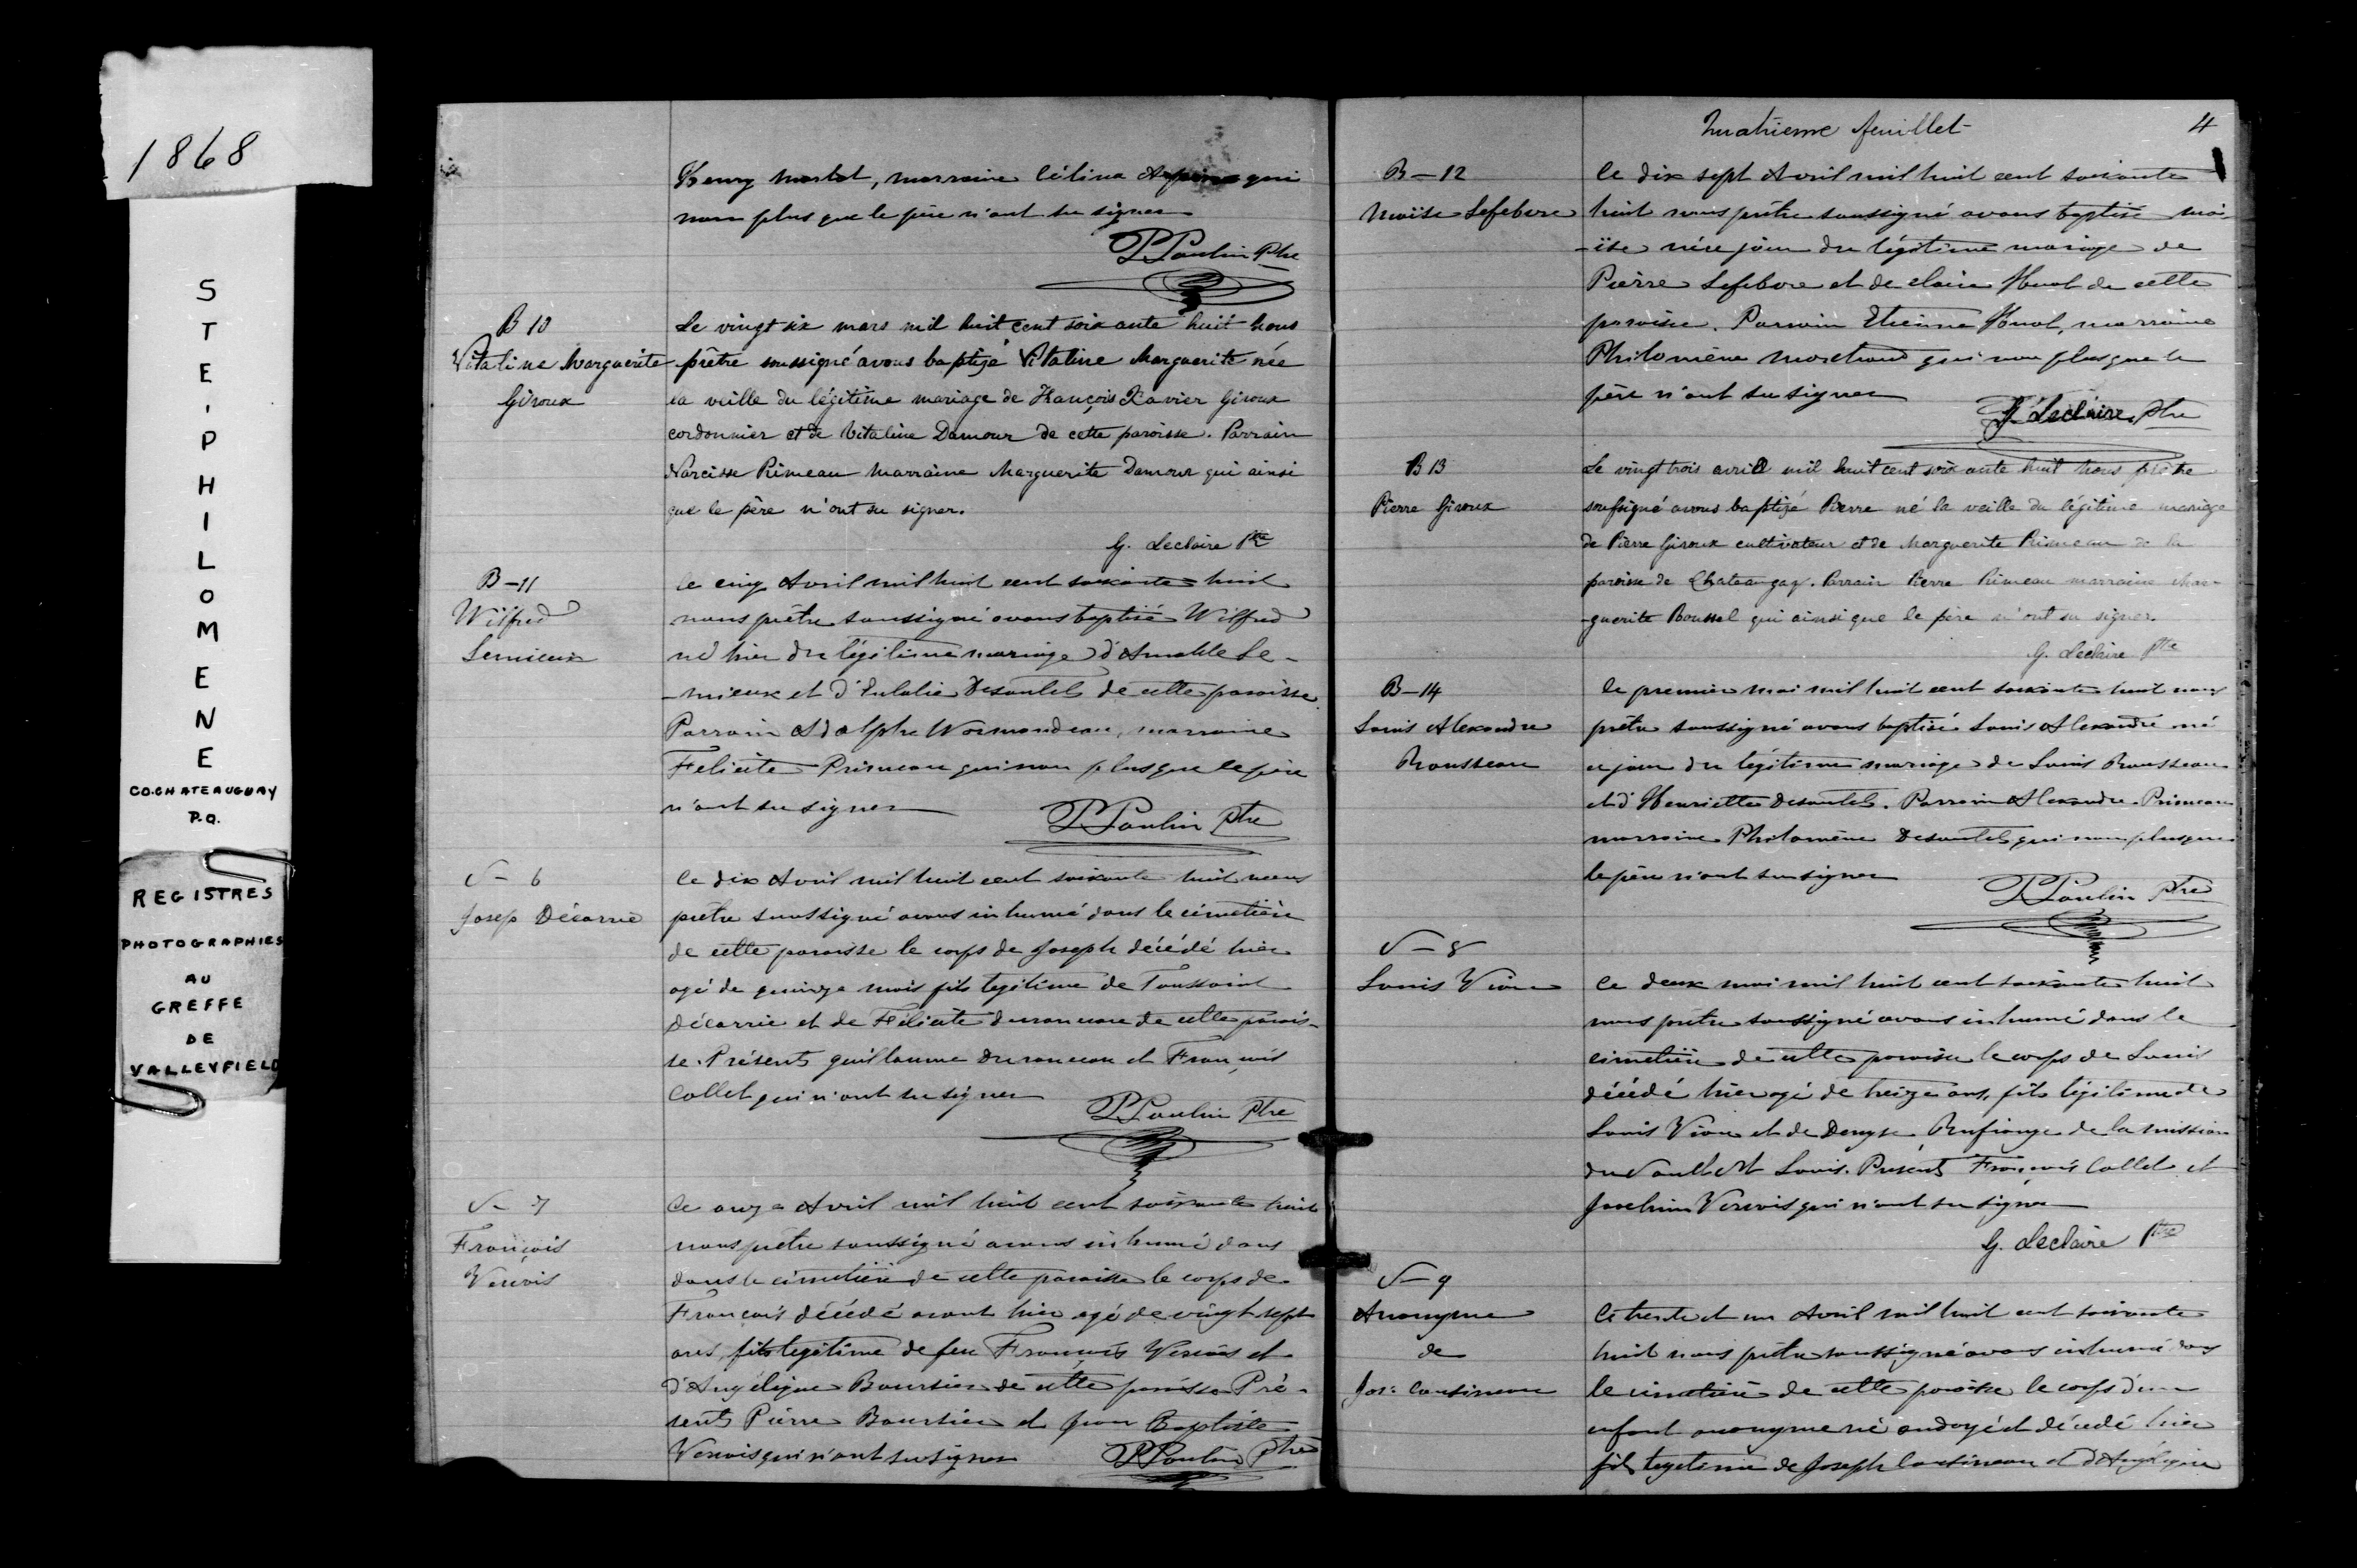 1868
STE'PHILOMENE
CO. CHATEAUGUAY
P.Q.
REGISTRES
PHOTOGRAPHIES
AU
GREFFE
DE
VALLEYFIELD
Henry marraine Célina qui
non plus que le père n'ont su signer
P Poulin Ptre
B 10
Vitaline Marguerite
Giroux
Le vingt six mars mil huit cent soixante huit nous
prêtre soussigné avons baptisé Vitaline Marguerite née
la veille du légitime mariage de François Xavier Giroux
cordonnier et de Vitaline Damour de cette paroisse. Parrain
Narcisse Primeau Marraine Marguerite Damour qui ainsi
que le père n'ont su signer.
G. Leclaire Ptre
B-11
Wilfred
Lemieux
Le cinq Avril mil huit cent soixante-huit
nous prêtre soussigné avons baptisé Wilfred
né hier du légitime mariage d'Amable Le-
-mieux et d'Eulalie Desautels de cette paroisse
Parrain Adolphe Normandeau, marraine
Felicité Primeau qui non plus que le père
n'ont su signer
P Poulin Ptre
S-6
Josep Décarrie
Le dix Avril mil huit cent soixante huit nous
prêtre soussigné avons inhumé dans le cimetière
de cette paroisse le corps de Joseph décédé hier
agé de quinze mois fils legitime de Toussaint
Décarrie et de Félicité Duranceau de cette parois-
se. Présents guillaume Duranceau et François
Collet qui n'ont su signer
P Poulin Ptre
S-7
François
Vervois
Le onze Avril mil huit cent soixante huit
nous prêtre soussigné avons inhumé dans
dans le cimetière de cette paroisse le corps de
François décédé avant hier agé de vingt sept
ans, fils legitime de feu François Vervois et
d'Angélique Boursier de cette paroisse Pré-
sents Pierre Boursier et Jean Baptiste
Vervois qui n'ont su signer P Poulin Ptre
Quatrieme feuillet 4
B-12
Moïse Lefebvre
Le dix sept Avril mil huit cent soixante
huit nous prêtre soussigné avons baptisé Mo-
-ïse né ce jour du légitime mariage de
Pierre Lefebvre et de Claire Huot de cette
paroisse. Parrain Etienne Huot, marraine
Philomène qui non plus que le
père n'ont su signer
G. Leclaire. Ptre
B 13
Pierre Giroux
Le vingt trois avril mil huit cent soixante huit nous prêtre
soussigné avons baptisé Pierre né la veille du légitime mariage
de Pierre Giroux cultivateur et de Marguerite Primeau de la
paroisse de Chateaugay. Parrain Pierre Primeau marraine Mar-
-guerite qui ainsi que le père n'ont su signer.
G. Leclaire Ptre
B-14
Louis Alexandre
Rousseau
Le premier mai mil huit cent soixante huit nous
prêtre soussigné avons baptisé Louis Alexandre né
ce jour du légitime mariage de Louis Rousseau
et d'Henriette Desautels. Parrain Alexandre Primeau
marraine Philomène Desautels qui non plus que
le père n'ont su signer
P Poulin Ptre
S-8
Louis Viau
Le deux mai mil huit cent soixante huit
nous prêtre soussigné avons inhumé dans le
cimetière de cette paroisse le corps de Louis
décédé hier agé de treize ans, fils légitime de
Louis Viau et de Denyse Rufiange de la mission
du Sault St Louis. Présents François Collet et
Joachim Vervois qui n'ont su signer
G. Leclaire Ptre
S-9
Anonyme
de
Jos: Cousineau
Le trente et un Avril mil huit cent soixante
huit nous prêtre soussigné avons inhumé dans
le cimetière de cette paroisse le corps d'un
enfant anonyme né ondoyé et décédé hier
fils legitime de Joseph Cousineau et d'Angélique